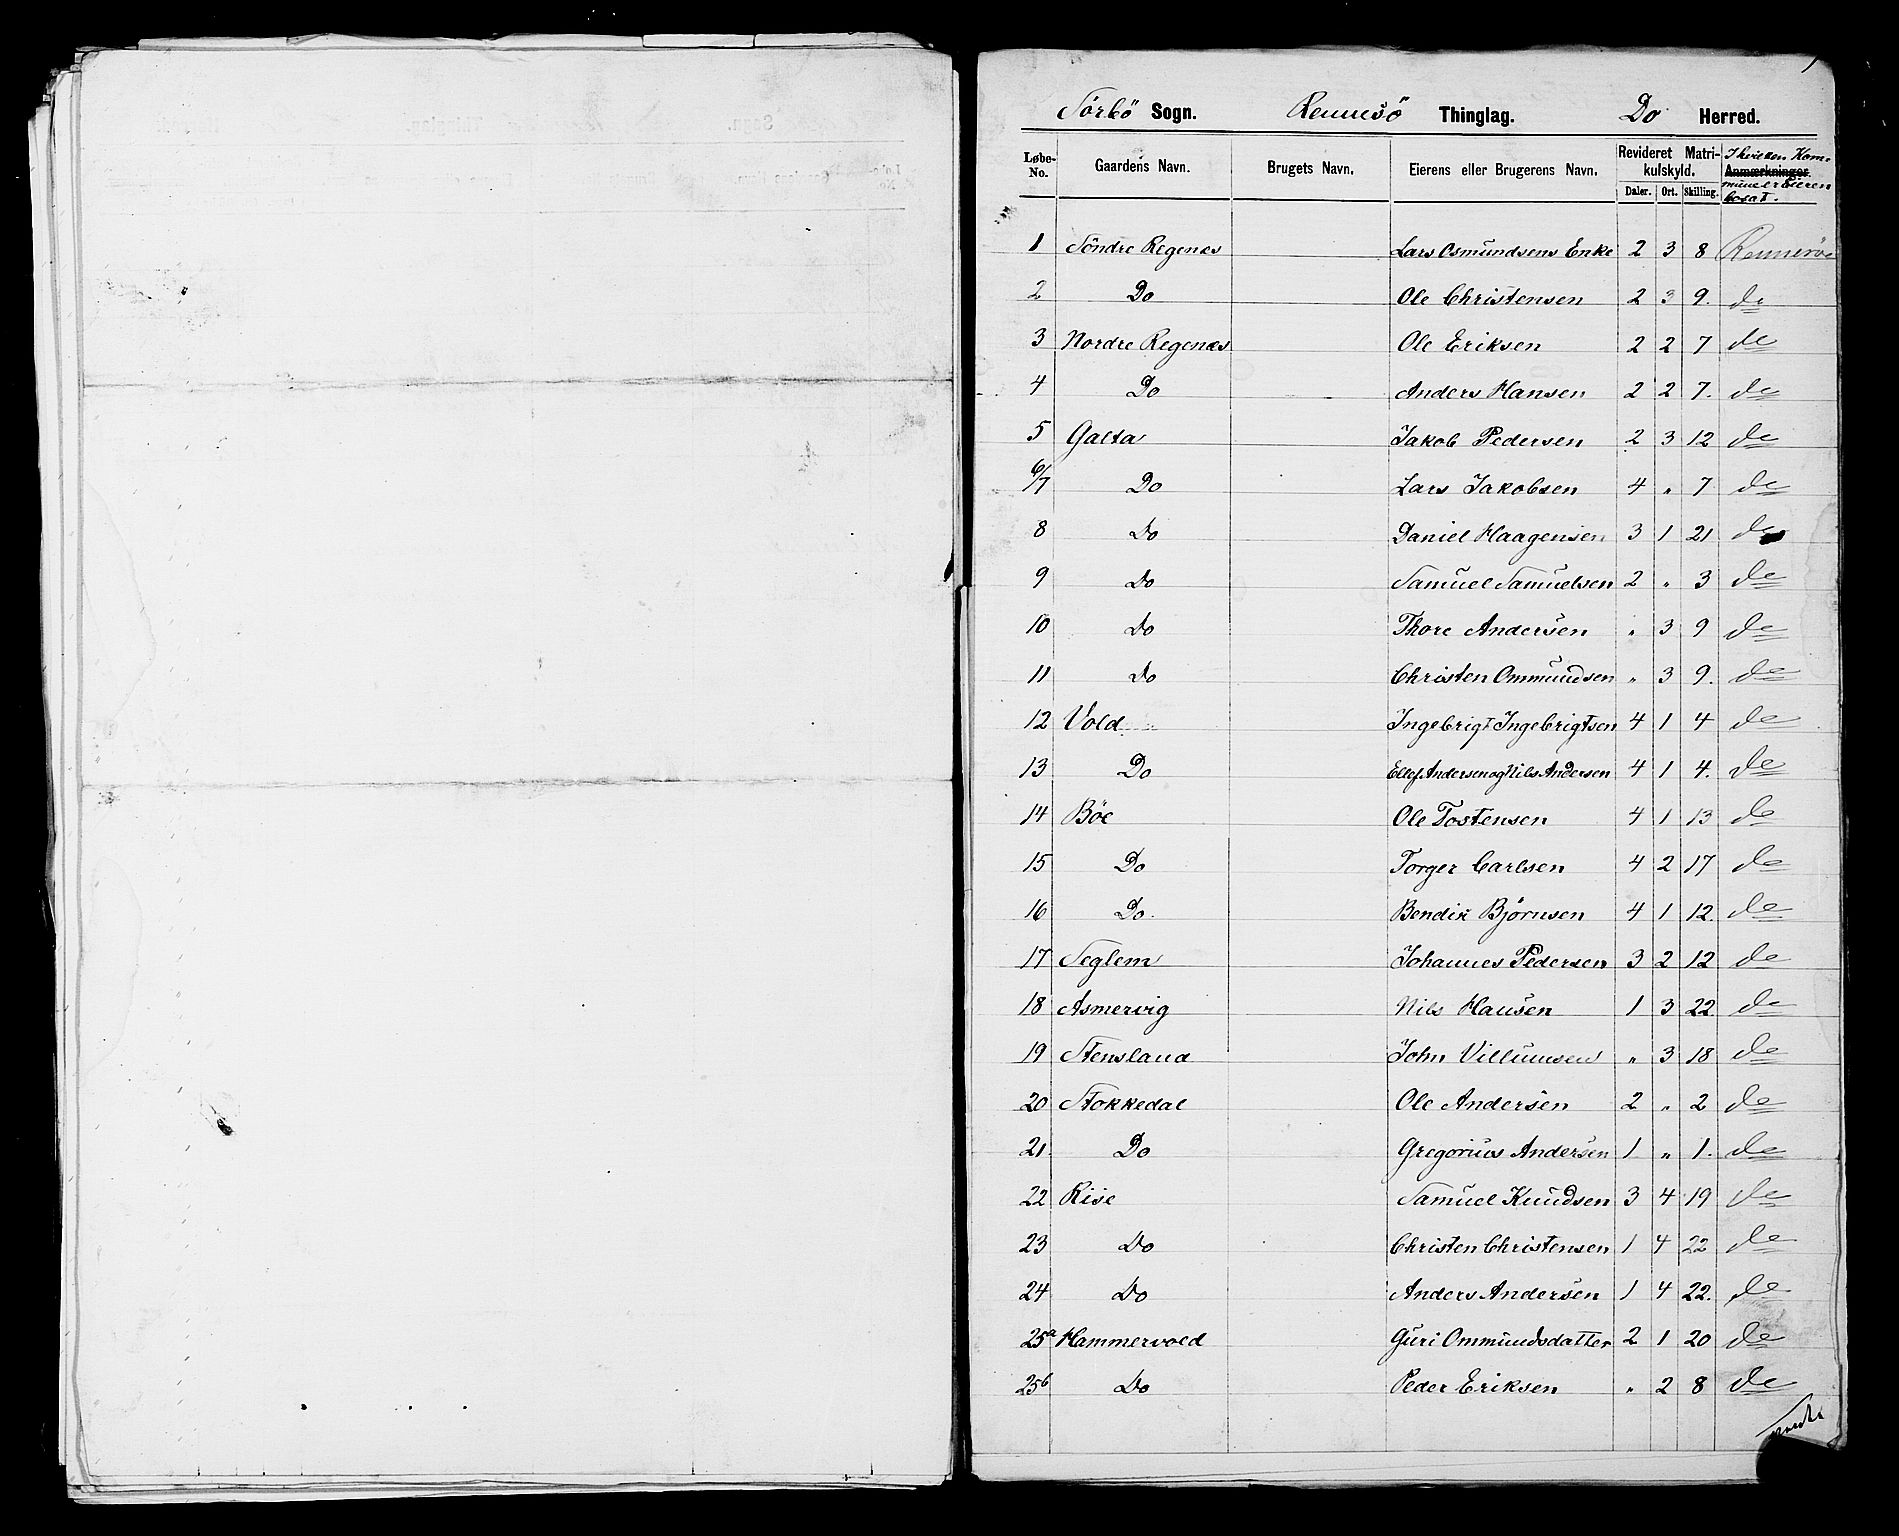 1
Sörbö Sogn. Rennesö Thinglag. Do Herred.
Løbe-No. Gaardens Navn. Brugets Navn. Eierens eller Brugerens Navn. Revideret Matrikulskyld. Daler. Ort. Skilling. Anmærkninger. I hvilken Kommune er Eieren bosat.
1 Söndre Regenæs Lars Osmundsens Enke 2 3 8 Rennesöe
2 Do Ole Christensen 2 3 9. do
3 Nordre Regenæs Ole Eriksen 2 2 7 do
4 Do Anders Hansen 2 2 7. do
5 Galta Jakob Pedersen 2 3 12 do
6/7 Do Lars Jakobsen 4 " 7 do
8 Do Daniel Haagensen 3 1 21 do
9 Do Samuel Samuelsen 2 " 3 do
10 Do Thore Andersen " 3 9 do
11 Do Christen Ommundsen " 3 9. do
12 Vold Ingebrigt Ingebrigtsen 4 1 4 do
13 Do Ellef Andersen og Nils Andersen 4 1 4. do
14 Böe Ole Tostensen 4 1 13 do
15 Do Torger Carlsen 4 2 17 do
16 Do. Bendik Björnsen 4 1 12. do
17 Seglem Johannes Pedersen 3 2 12 do
18 Asmervig Nils Hansen 1 3 22 do
19 Stensland John Villumsen " 3 18 do
20 Stokkedal Ole Andersen 2 " 2 do
21. Do Gregorius Andersen 1 " 1. do
22 Riise Samuel Knudsen 3 4 19 do
23 Do Christen Christensen 1 4 22 do
24 Do Anders Andersen 1 4 22. do
25a Hammervold Guri Ommundsdatter 2 1 20 do
25b Do Peder Eriksen " 2 8 do